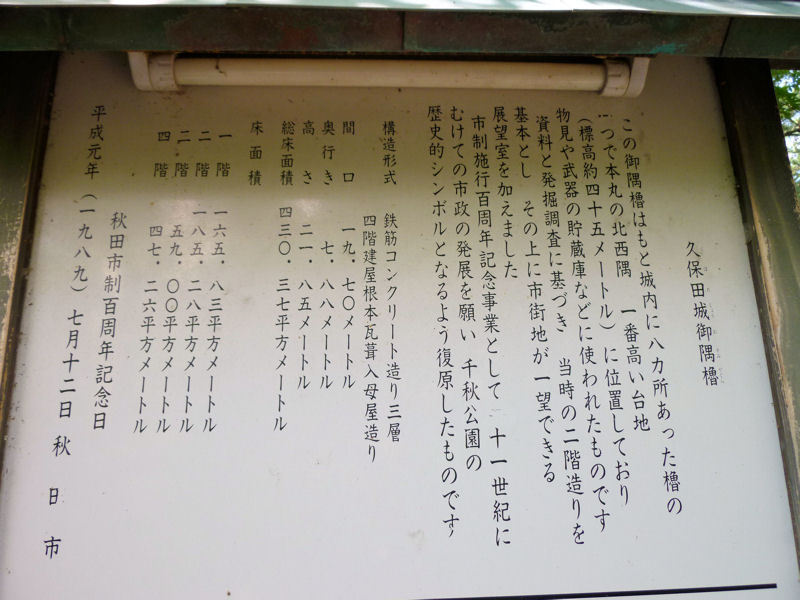 久保田城御隅櫓
この御隅櫓はもと城内に八カ所あった櫓の
つで本丸の北西隅 一番高い台地
(標高約四十五メートル)に位置しており
物見や武器の貯蔵庫などに使われたものです
資料と発掘調査に基づき 当時の二階造りを
基本とし その上に市街地が一望できる
展望室を加えました
市制施行百周年記念事業として 十一世紀に
むけての市政の発展を願い 千秋公園の
歴史的シンボルとなるよう復原したものです
構造形式 鉄筋コンクリート造り三層
四階建屋根本瓦葺入母屋造り
間口 一九.七〇メートル
奥行き 七.八八メートル
高さ 二一.八五メートル
総床面積 四三〇.三七平方メートル
床面積
一階 一六五.八三平方メートル
二階 一八五.二八平方メートル
二階 五九.〇〇平方メートル
四階 四七.二六平方メートル
秋田市制百周年記念日
平成元年(一九八九)七月十二日 秋日市